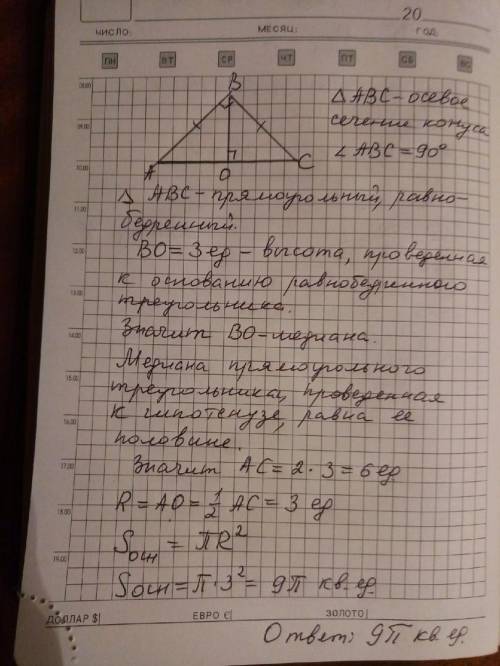 20
ЧИСЛО:
МЕСЯЦ:
ГОД
ПН ВТ СР ЧТ ПТ СБ ВС
08.00
09.00
10.00
11.00
12.00
13.00
14.00
15.00
16.00
17.00
18.00
19.00
B
A
O
C
△ ABC - осевое
сечение конуса
∠ ABC = 90°
△ ABC - прямоугольный, равно-
бедренный.
BO = 3 ед - высота, проведенная
к основанию равнобедренного
треугольника.
Значит BO - медиана.
Медиана прямоугольного
треугольника, проведенная
к гипотенузе, равна ее
половине.
Значит AC = 2 · 3 = 6 ед
R = AO = 1/2 AC = 3 ед
Sосн = πR²
Sосн = π·3² = 9π кв. ед.
ДОЛЛАР $|
ЕВРО €|
ЗОЛОТО|
Ответ: 9π кв. ед.